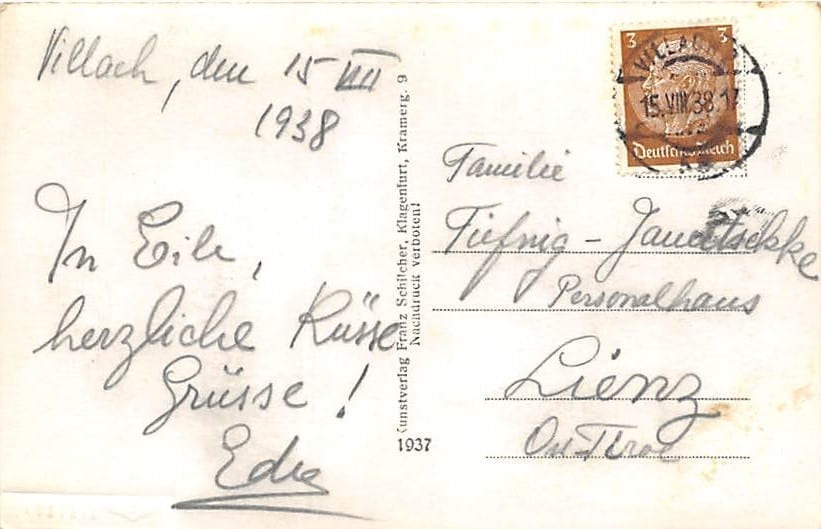 Villach, den 15 VIII
1938
In Eile,
herzliche Küsse
Grüsse!
Kunstverlag Franz Schilcher, Klagenfurt, Kramerg. 9
Nachdruck verboten!
1937
3 3
Deutsches Reich
VILLACH
15.VIII.38.17
Familie
Tiefnig -
Personalhaus
Lienz
Ost-Tirol